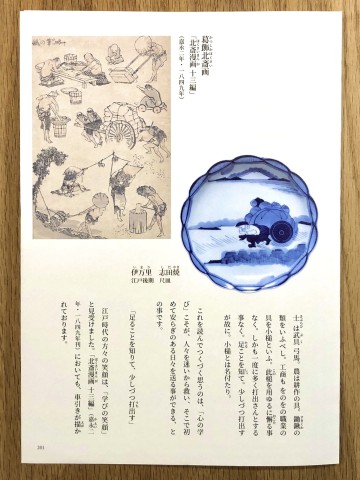 葛飾北斎画
『北斎漫画 十三編』
（嘉永二年・一八四九年）
伊万里 志田焼
江戸後期 尺皿
士は武具 弓馬、農は耕作の具、鋤鍬の
類をいふべし、工商も をのをの職業の
具を小槌といふ、此槌を用ゆるに懈る事
なく、しかも一度に多く打出さんとする
事なく、足ことを知て、少しづつ打出す
が故に、小槌とは名付たり、
これを読んでつくづく思うのは、「心の学
び」こそが、人々を迷いから救い、そこで初
めて安らぎのある日々を送る事ができる、と
の事です。
「足ることを知りて、少しづつ打出す」
江戸時代の方々の笑顔は、〝学びの笑顔〟
と見受けました。『北斎漫画 十三編』（嘉永二
年・一八四九年刊）においても、車引きが描か
れております。
301